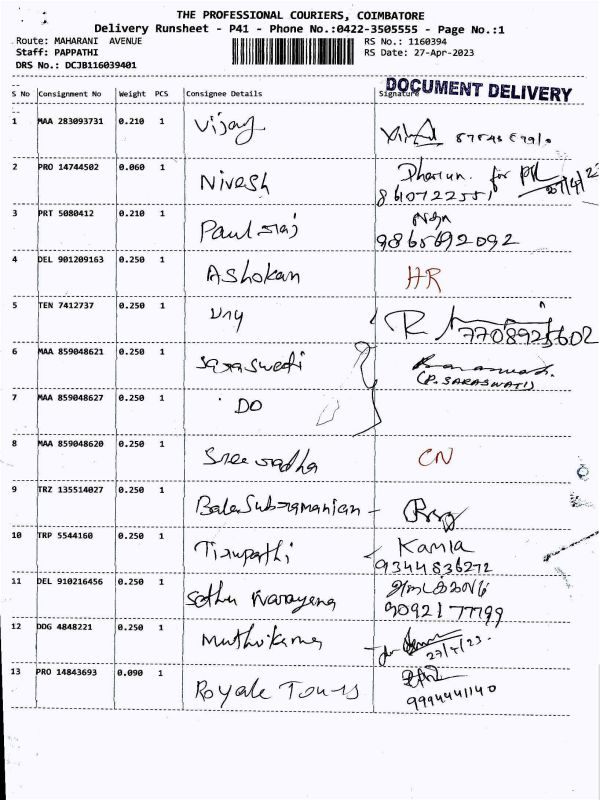 THE PROFESSIONAL COURIERS, COIMBATORE
Delivery Runsheet - P41 - Phone No.:0422-3505555 - Page No.:1
Route: MAHARANI AVENUE
RS No.: 1160394
Staff: PAPPATHI
RS Date: 27-Apr-2023
DRS No.: DCJB116039401
DOCUMENT DELIVERY
S No Consignment No Weight PCS Consignee Details Signature
1 MAA 283093731 0.210 1 Vijay
2 PRO 14744502 0.060 1 Nivesh for 27/4/23
8610722551
3 PRT 5080412 0.210 1 Paul raj
9865692092
4 DEL 901209163 0.250 1 Ashokan HR
5 TEN 7412737 0.250 1 R
7708925602
6 MAA 859048621 0.250 1 saraswati
(P. SARASWATI)
7 MAA 859048627 0.250 1 DO
8 MAA 859048620 0.250 1 Sree radha CN
9 TRZ 135514027 0.250 1 BalaSubramanian -
10 TRP 5544160 0.250 1 Tirupathi Kamla
9344836272
11 DEL 910216456 0.250 1 Sethu Narayana
9092177799
12 DDG 4848221 0.250 1 Muthukumar
27/4/23.
13 PRO 14843693 0.090 1 Royale Tours
9994441140